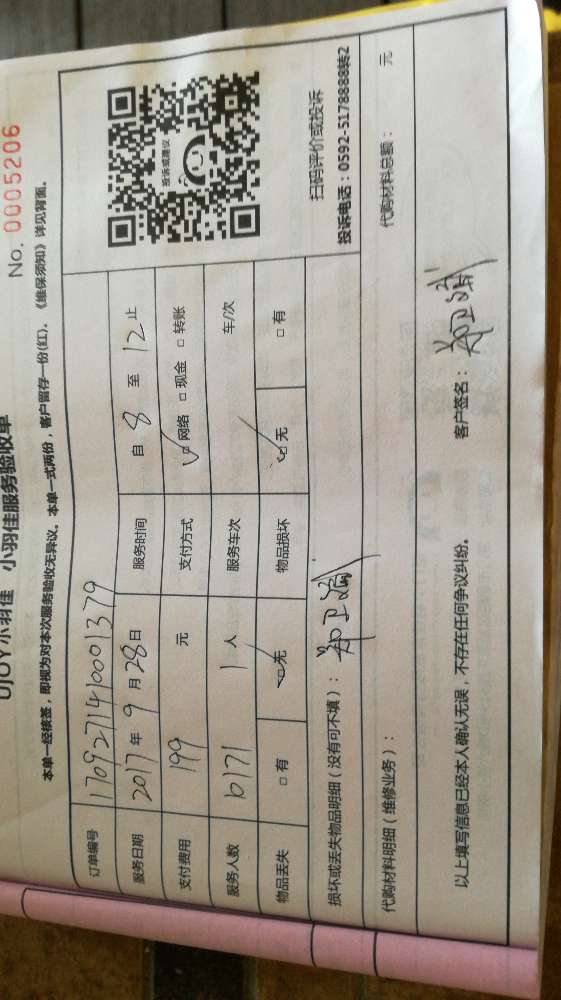 UJOY小羽佳 小羽佳服务验收单
No. 0005206
本单一经核签，即视为对本次服务验收无异议。本单一式两份，客户留存一份(红)，《维保须知》详见背面。
订单编号 1709271410001379
服务日期 2017年9月28日 服务时间 自8至12止
支付费用 199 元 支付方式 ☑网络 □现金 □转账
服务人数 6171 1人 服务车次 车/次
物品丢失 □有 ☑无 物品损坏 ☑无 □有
投诉或建议
扫码评价或投诉
投诉电话：0592-5178888转2
损坏或丢失物品明细（没有可不填）：
代购材料明细（维修业务）： 代购材料总额： 元
以上填写信息已经本人确认无误，不存在任何争议纠纷。 客户签名：